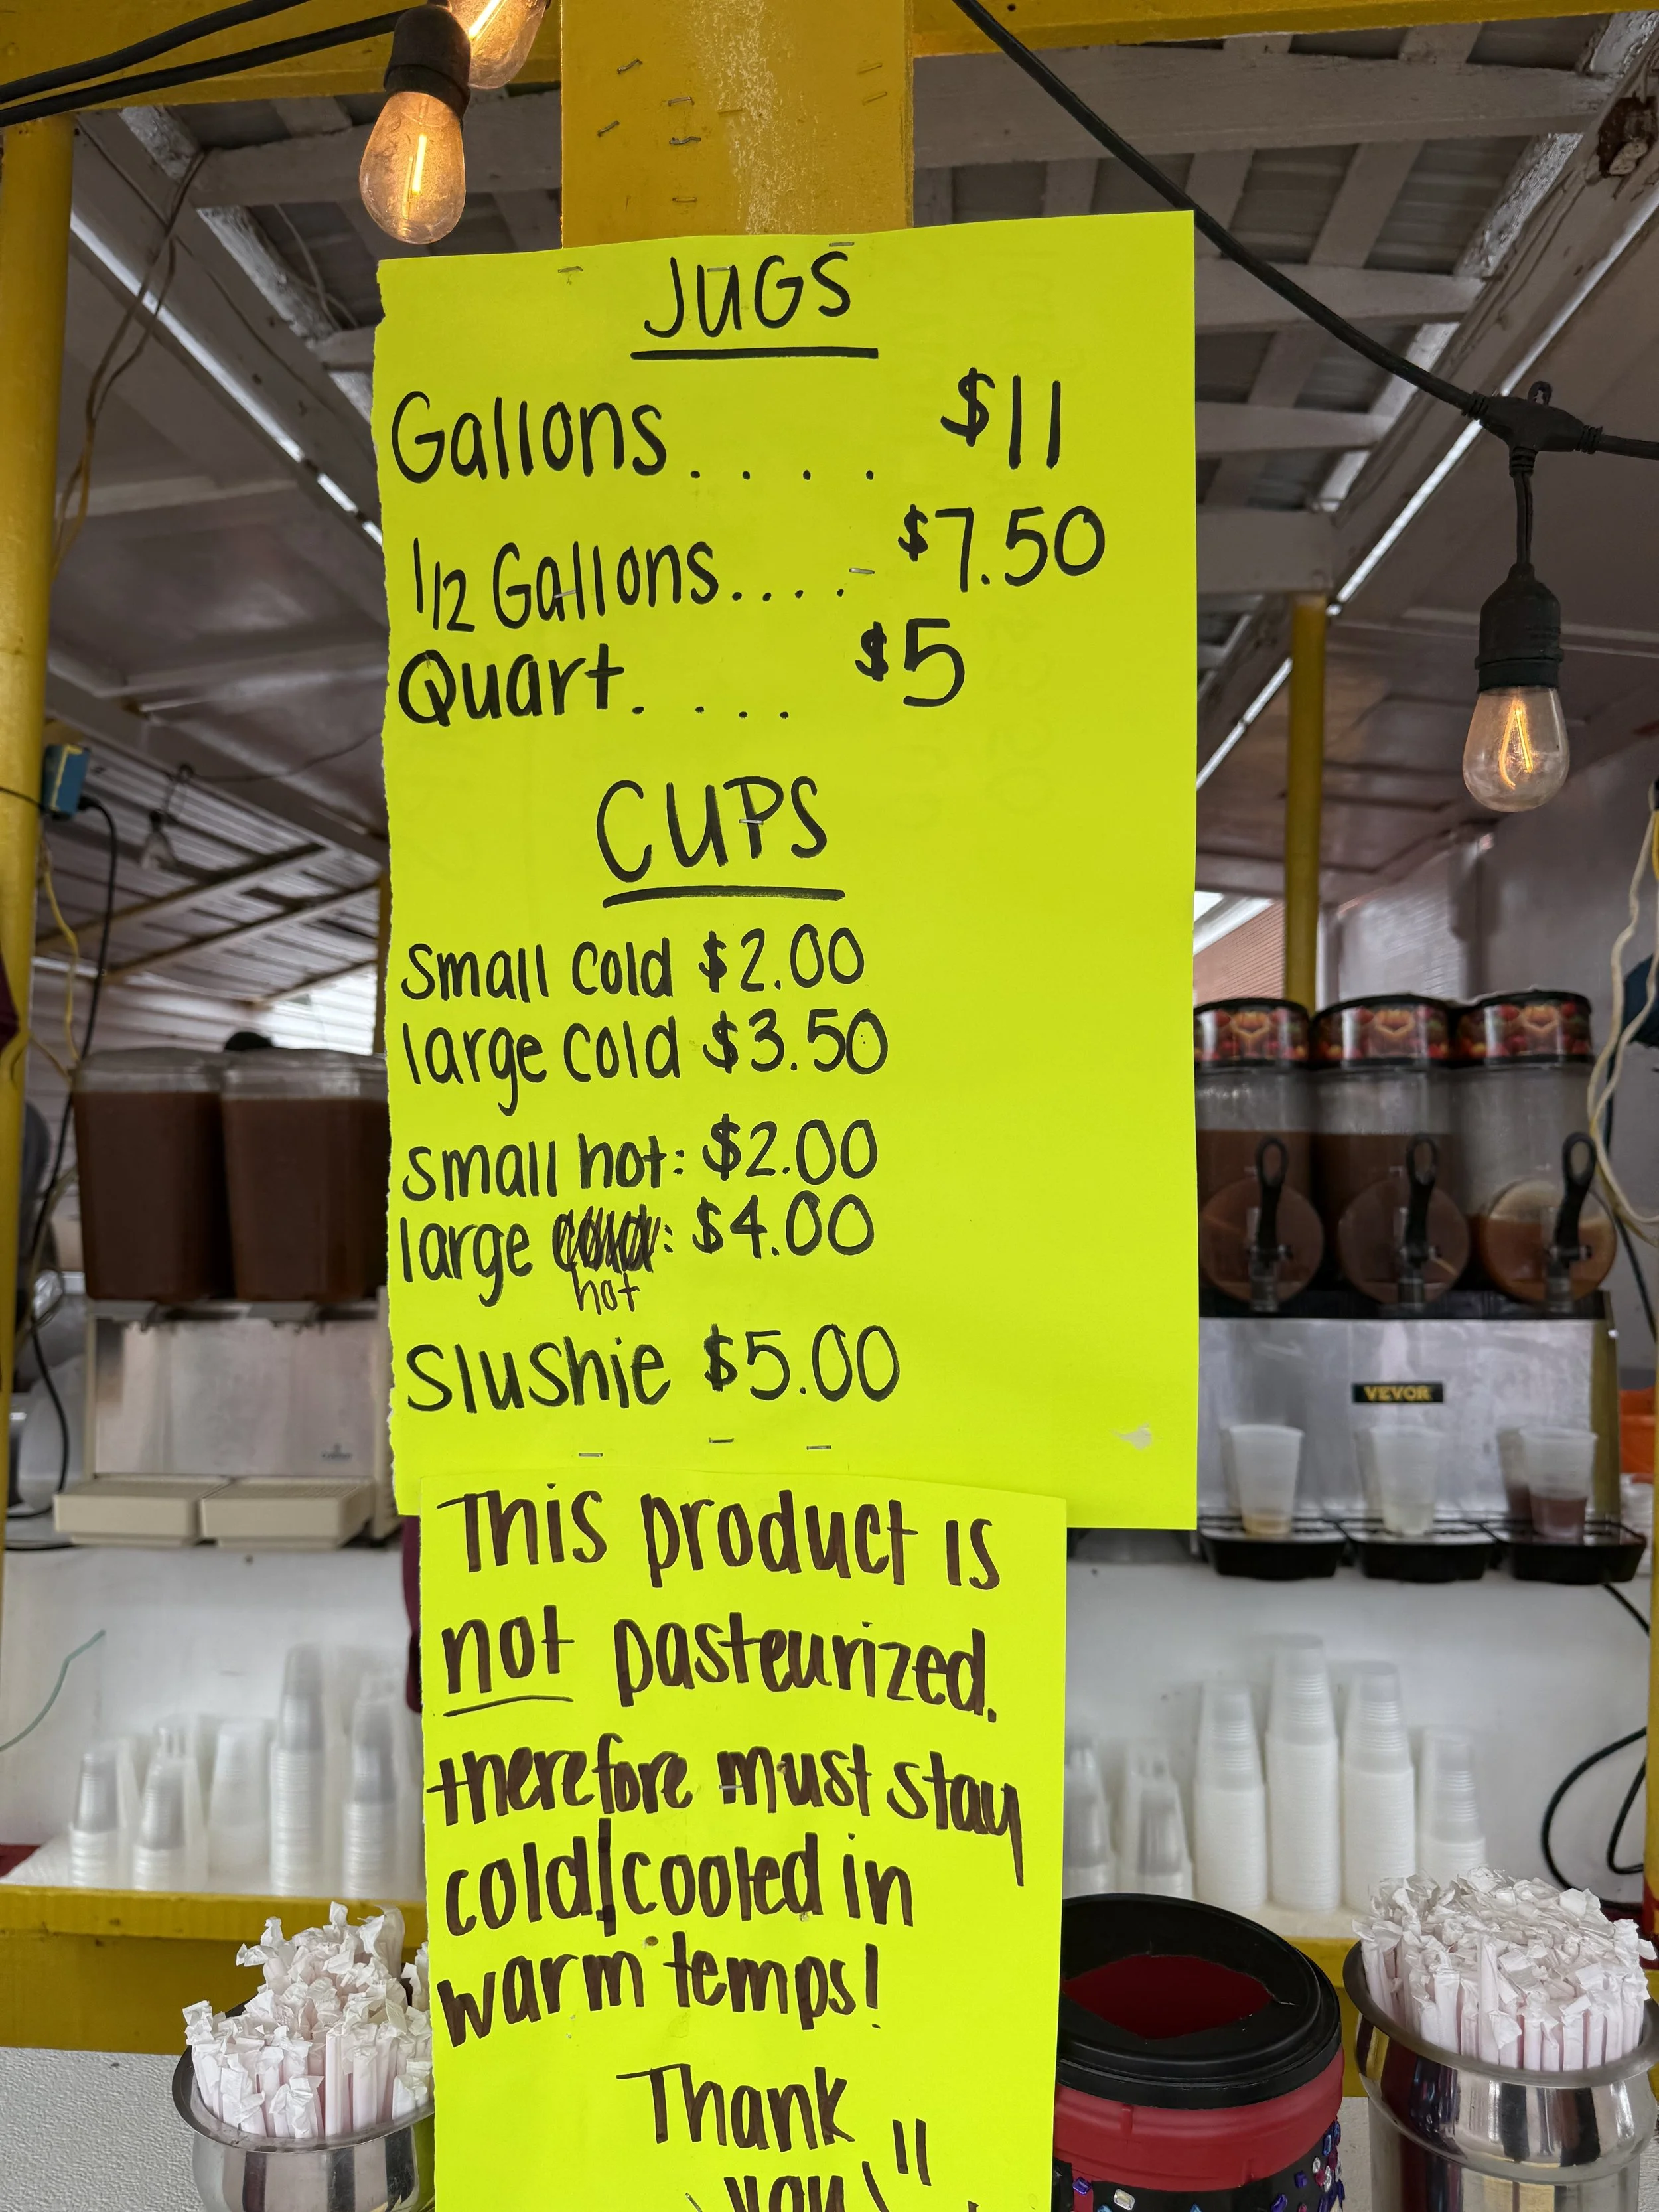 JUGS
Gallons.... $11
1/2 Gallons.... $7.50
Quart.... $5
CUPS
Small cold $2.00
large cold $3.50
small hot: $2.00
large hot: $4.00
Slushie $5.00
This product is
not pasteurized.
therefore must stay
cold/cooled in
warm temps!
Thank
you!
VEVOR